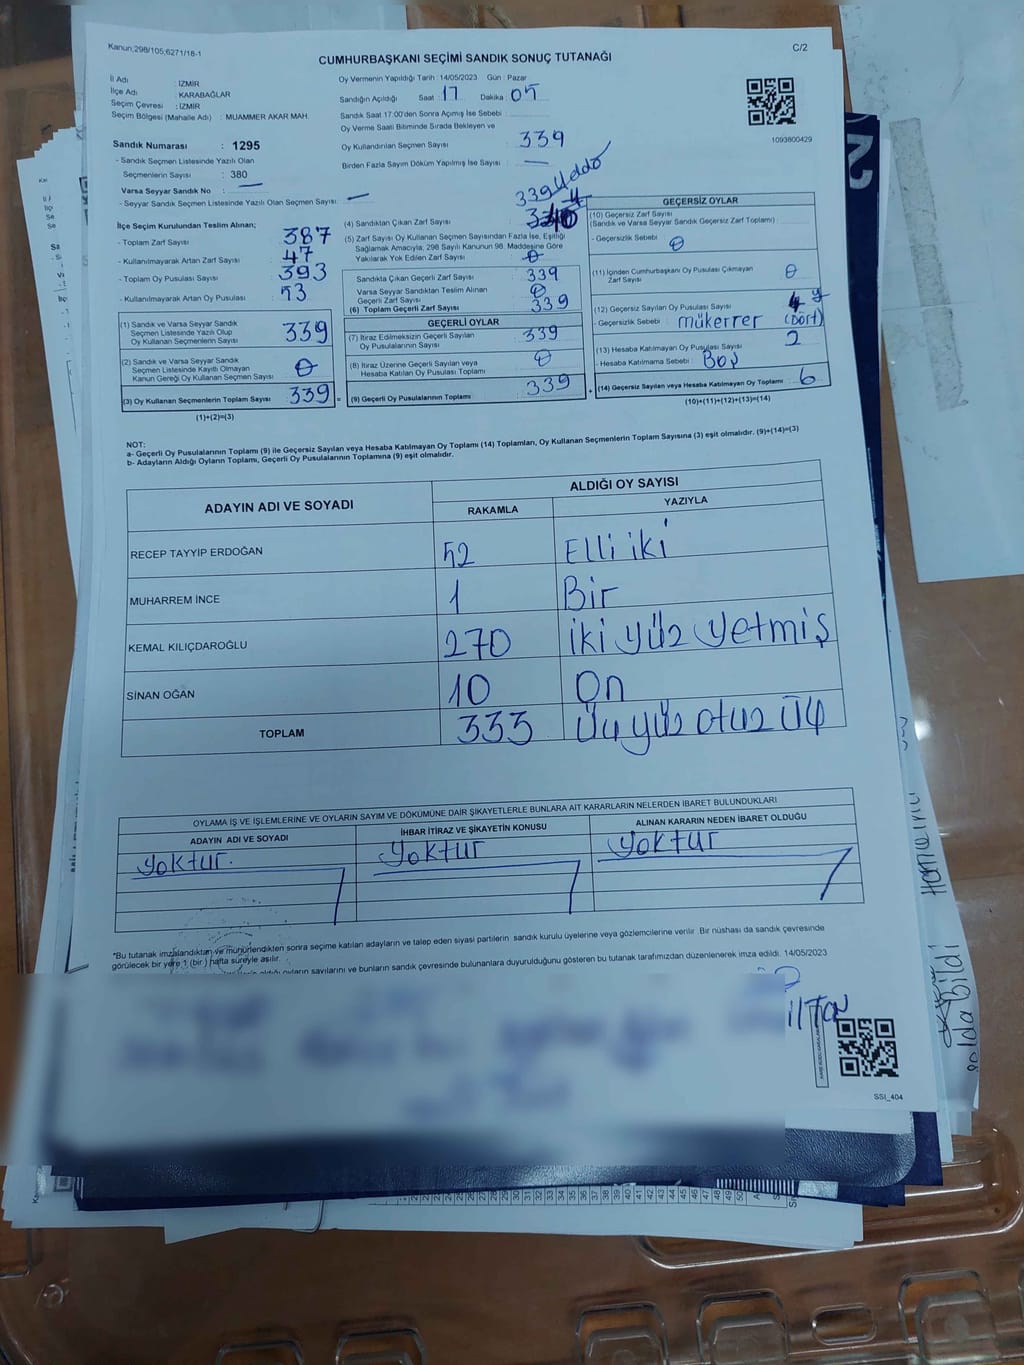 Kanun;298/105;6271/18-1
C/2
CUMHURBAŞKANI SEÇİMİ SANDIK SONUÇ TUTANAĞI
İl Adı : İZMİR
İlçe Adı : KARABAĞLAR
Seçim Çevresi : İZMİR
Seçim Bölgesi (Mahalle Adı) : MUAMMER AKAR MAH.
Oy Vermenin Yapıldığı Tarih : 14/05/2023 Gün : Pazar
Sandığın Açıldığı Saat : 17 Dakika : 05
Sandık Saat 17:00'den Sonra Açmış İse Sebebi :
Oy Verme Saati Bitiminde Sırada Bekleyen ve
Oy Kullandırılan Seçmen Sayısı : 339
Birden Fazla Sayım Döküm Yapılmış İse Sayısı : —
1093800429
Sandık Numarası : 1295
- Sandık Seçmen Listesinde Yazılı Olan
Seçmenlerin Sayısı : 380
Varsa Seyyar Sandık No : —
- Seyyar Sandık Seçmen Listesinde Yazılı Olan Seçmen Sayısı : —
İlçe Seçim Kurulundan Teslim Alınan;
- Toplam Zarf Sayısı : 387
- Kullanılmayarak Artan Zarf Sayısı : 47
- Toplam Oy Pusulası Sayısı : 393
- Kullanılmayarak Artan Oy Pusulası : 53
(1) Sandık ve Varsa Seyyar Sandık
Seçmen Listesinde Yazılı Olup
Oy Kullanan Seçmenlerin Sayısı : 339
(2) Sandık ve Varsa Seyyar Sandık
Seçmen Listesinde Kayıtlı Olmayan
Kanun Gereği Oy Kullanan Seçmen Sayısı : 0
(3) Oy Kullanan Seçmenlerin Toplam Sayısı : 339
(1)+(2)=(3)
339
(4) Sandıktan Çıkan Zarf Sayısı
(5) Zarf Sayısı Oy Kullanan Seçmen Sayısından Fazla İse, Eşitliği
Sağlamak Amacıyla, 298 Sayılı Kanunun 98. Maddesine Göre
Yakılarak Yok Edilen Zarf Sayısı : 0
Sandıkta Çıkan Geçerli Zarf Sayısı : 339
Varsa Seyyar Sandıktan Teslim Alınan
Geçerli Zarf Sayısı : 0
(6) Toplam Geçerli Zarf Sayısı : 339
GEÇERLİ OYLAR
(7) İtiraz Edilmeksizin Geçerli Sayılan
Oy Pusulalarının Sayısı : 339
(8) İtiraz Üzerine Geçerli Sayılan veya
Hesaba Katılan Oy Pusulası Toplamı : 0
(9) Geçerli Oy Pusulalarının Toplamı : 339
GEÇERSİZ OYLAR
(10) Geçersiz Zarf Sayısı
(Sandık ve Varsa Seyyar Sandık Geçersiz Zarf Toplamı) :
- Geçersizlik Sebebi : 0
(11) İçinden Cumhurbaşkanı Oy Pusulası Çıkmayan
Zarf Sayısı : 0
(12) Geçersiz Sayılan Oy Pusulası Sayısı : 4
- Geçersizlik Sebebi : mükerrer (Dört)
(13) Hesaba Katılmayan Oy Pusulası Sayısı : 2
- Hesaba Katılmama Sebebi : Boş
(14) Geçersiz Sayılan veya Hesaba Katılmayan Oy Toplamı : 6
(10)+(11)+(12)+(13)=(14)
NOT:
a- Geçerli Oy Pusulalarının Toplamı (9) ile Geçersiz Sayılan veya Hesaba Katılmayan Oy Toplamı (14) Toplamları, Oy Kullanan Seçmenlerin Toplam Sayısına (3) eşit olmalıdır. (9)+(14)=(3)
b- Adayların Aldığı Oyların Toplamı, Geçerli Oy Pusulalarının Toplamına (9) eşit olmalıdır.
ADAYIN ADI VE SOYADI
ALDIĞI OY SAYISI
RAKAMLA YAZIYLA
RECEP TAYYİP ERDOĞAN 52 Elli iki
MUHARREM İNCE 1 Bir
KEMAL KILIÇDAROĞLU 270 iki yüz yetmiş
SİNAN OĞAN 10 On
TOPLAM 333 Üç yüz otuz üç
OYLAMA İŞ VE İŞLEMLERİNE VE OYLARIN SAYIM VE DÖKÜMÜNE DAİR ŞİKAYETLERLE BUNLARA AİT KARARLARIN NELERDEN İBARET BULUNDUKLARI
ADAYIN ADI VE SOYADI İHBAR İTİRAZ VE ŞİKAYETİN KONUSU ALINAN KARARIN NEDEN İBARET OLDUĞU
yoktur. yoktur yoktur
*Bu tutanak imzalandıktan ve mühürlendikten sonra seçime katılan adayların ve talep eden siyasi partilerin sandık kurulu üyelerine veya gözlemcilerine verilir. Bir nüshası da sandık çevresinde
görülecek bir yere 1 (bir) hafta süreyle asılır.
oyların sayılarını ve bunların sandık çevresinde bulunanlara duyurulduğunu gösteren bu tutanak tarafımızdan düzenlenerek imza edildi. 14/05/2023
SSİ_404